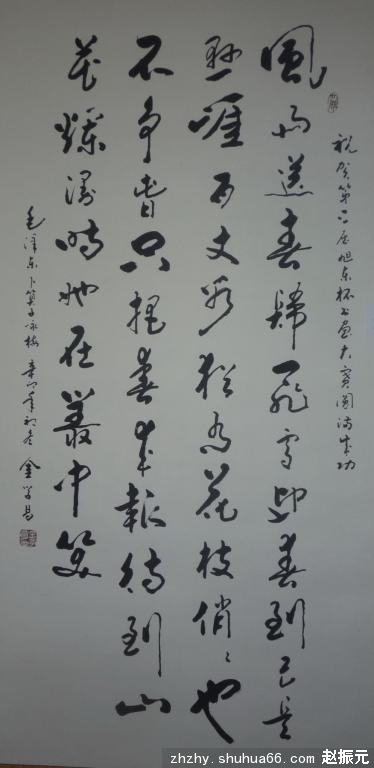 祝贺第二届旭东杯书画大赛圆满成功
風雨送春歸飛雪迎春到已是
懸崖百丈冰猶有花枝俏〻也
不争春只把春来報待到山
花爛漫時她在叢中笑
毛泽东卜算子咏梅 辛卯年初冬 金学昌
zhzhy.shuhua66.com 赵振元